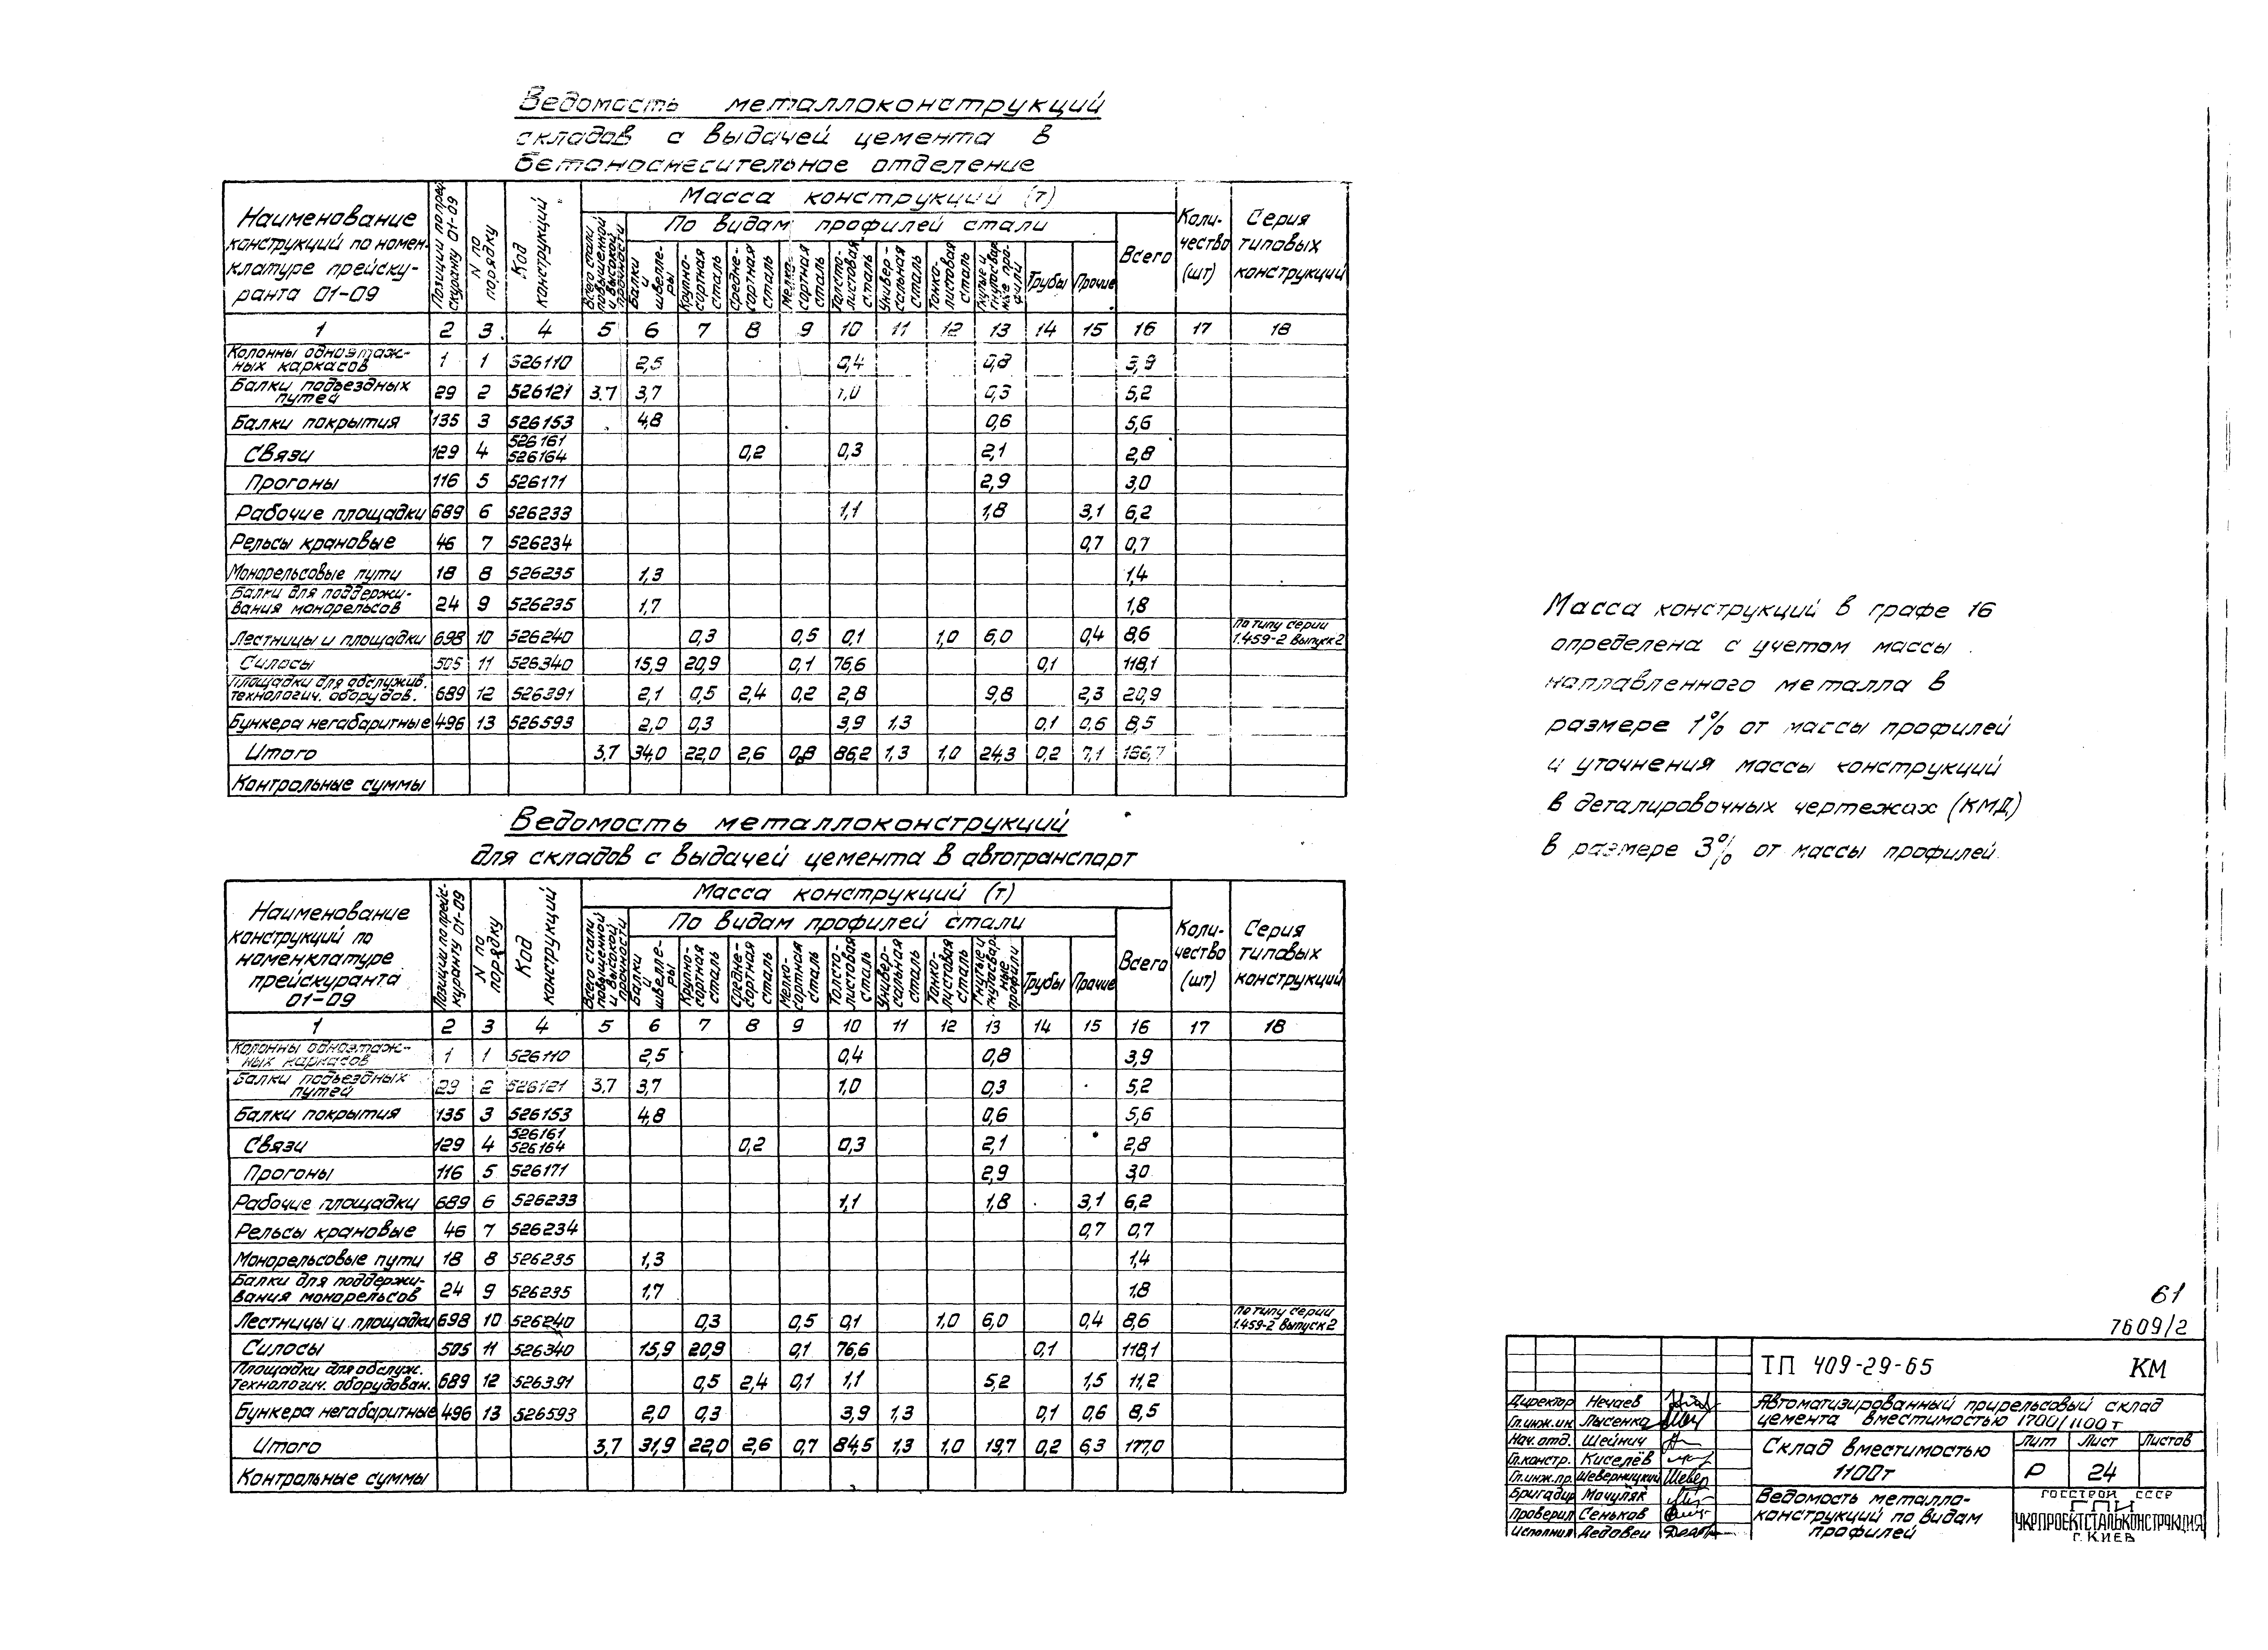 Ведомость металлоконструкций
складов с выдачей цемента в
бетоносмесительное отделение
Наименование конструкций по номенклатуре прейскуранта 01-09 | Позиции по прейскуранту 01-09 | N по порядку | Код конструкций | Масса конструкций (т) | Количество (шт) | Серия типовых конструкций
Всего стали повышенной и высокой прочности | По видам профилей стали | Всего
Балки и швеллеры | Крупносортная сталь | Среднесортная сталь | Мелкосортная сталь | Толстолистовая сталь | Универсальная сталь | Тонколистовая сталь | Гнутые и гнутосварные профили | Трубы | Прочие
1 2 3 4 5 6 7 8 9 10 11 12 13 14 15 16 17 18
Колонны одноэтажных каркасов 1 1 526110 2,5 0,4 0,8 3,9
Балки подъездных путей 29 2 526121 3.7 3,7 1,0 0,3 5,2
Балки покрытия 135 3 526153 4,8 0,6 5,6
Связи 129 4 526161 526164 0,2 0,3 2,1 2,8
Прогоны 116 5 526171 2,9 3,0
Рабочие площадки 689 6 526233 1,1 1,8 3,1 6,2
Рельсы крановые 46 7 526234 0,7 0,7
Монорельсовые пути 18 8 526235 1,3 1,4
Балки для поддерживания монорельсов 24 9 526235 1,7 1,8
Лестницы и площадки 698 10 526240 0,3 0,5 0,1 1,0 6,0 0,4 8,6 По типу серии 1.459-2 Выпуск 2
Силосы 505 11 526340 15,9 20,9 0,1 76,6 0,1 118,1
Площадки для обслужив. технологич. оборудов. 689 12 526391 2,1 0,5 2,4 0,2 2,8 9,8 2,3 20,9
Бункера негабаритные 496 13 526593 2,0 0,3 3,9 1,3 0,1 0,6 8,5
Итого 3,7 34,0 22,0 2,6 0,8 86,2 1,3 1,0 24,3 0,2 7,1 186,7
Контрольные суммы
Ведомость металлоконструкций
для складов с выдачей цемента в автотранспорт
Наименование конструкций по номенклатуре прейскуранта 01-09 | Позиции по прейскуранту 01-09 | N по порядку | Код конструкций | Масса конструкций (т) | Количество (шт) | Серия типовых конструкций
Всего стали повышенной и высокой прочности | По видам профилей стали | Всего
Балки и швеллеры | Крупносортная сталь | Среднесортная сталь | Мелкосортная сталь | Толстолистовая сталь | Универсальная сталь | Тонколистовая сталь | Гнутые и гнутосварные профили | Трубы | Прочие
1 2 3 4 5 6 7 8 9 10 11 12 13 14 15 16 17 18
Колонны одноэтажных каркасов 1 1 526110 2,5 0,4 0,8 3,9
Балки подъездных путей 29 2 526121 3,7 3,7 1,0 0,3 5,2
Балки покрытия 135 3 526153 4,8 0,6 5,6
Связи 129 4 526161 526164 0,2 0,3 2,1 2,8
Прогоны 116 5 526171 2,9 3,0
Рабочие площадки 689 6 526233 1,1 1,8 3,1 6,2
Рельсы крановые 46 7 526234 0,7 0,7
Монорельсовые пути 18 8 526235 1,3 1,4
Балки для поддерживания монорельсов 24 9 526235 1,7 1,8
Лестницы и площадки 698 10 526240 0,3 0,5 0,1 1,0 6,0 0,4 8,6 По типу серии 1.459-2 Выпуск 2
Силосы 505 11 526340 15,9 20,9 0,1 76,6 0,1 118,1
Площадки для обслуж. технологич. оборудован. 689 12 526391 0,5 2,4 0,1 1,1 5,2 1,5 11,2
Бункера негабаритные 496 13 526593 2,0 0,3 3,9 1,3 0,1 0,6 8,5
Итого 3,7 31,9 22,0 2,6 0,7 84,5 1,3 1,0 19,7 0,2 6,3 177,0
Контрольные суммы
Масса конструкций в графе 16
определена с учетом массы
наплавленного металла в
размере 1% от массы профилей
и уточнения массы конструкций
в деталировочных чертежах (КМД)
в размере 3% от массы профилей.
61
7609/2
ТП 409-29-65 КМ
Директор Нечаев
Гл.инж.ин. Лысенко
Нач. отд. Шейнич
Гл.констр. Киселёв
Гл.инж.пр. Шеверницкий
Бригадир Мацупяк
Проверил Сеньков
Исполнил Дедовец
Автоматизированный прирельсовый склад
цемента вместимостью 1700/1100т
Склад вместимостью
1100т
Лит Лист Листов
Р 24
Ведомость металло-
конструкций по видам
профилей
ГОССТРОЙ СССР
ГПИ
УКРПРОЕКТСТАЛЬКОНСТРУКЦИЯ
г. Киев